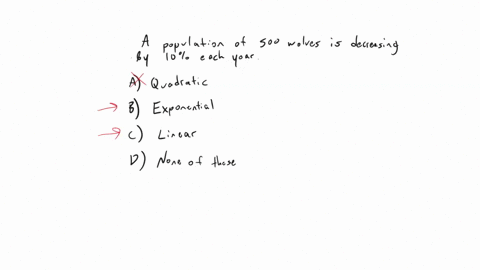 A population of 500 wolves is decreasing
By 10% each year.
A) Quadratic
B) Exponential
C) Linear
D) None of those